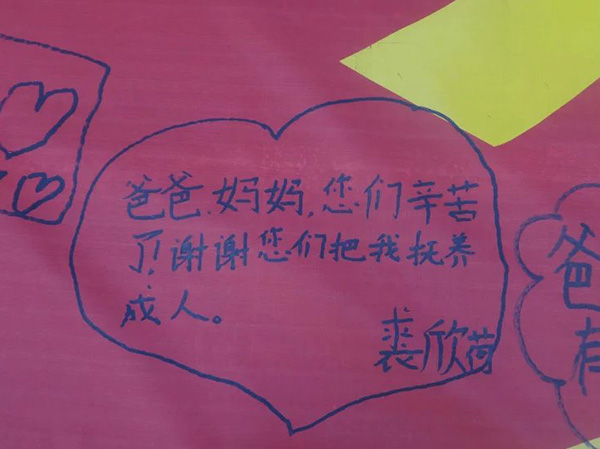 爸爸.妈妈,您们辛苦
了!谢谢您们把我抚养
成人。
裘欣荷
爸